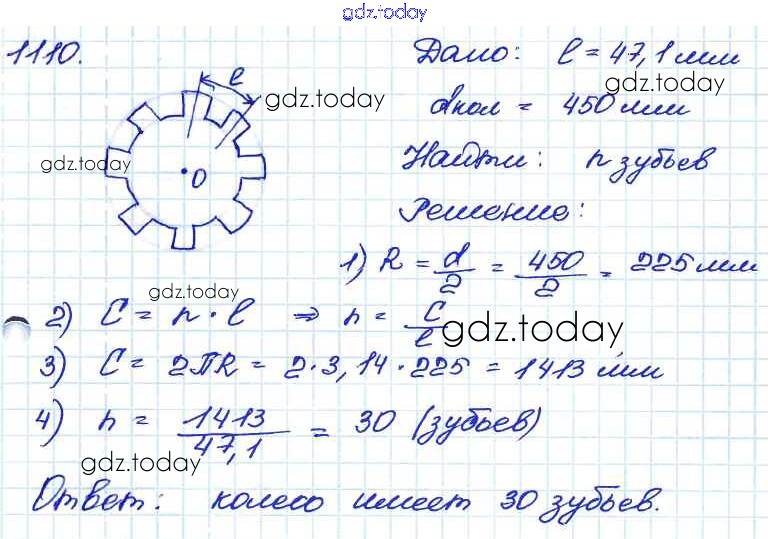 gdz.today
1110.
Дано: ℓ = 47,1 мм
gdz.today
ℓ
gdz.today
dкол = 450 мм
gdz.today
Найти: n зубьев
O
Решение:
1) R = d/2 = 450/2 = 225 мм
gdz.today
2) C = n · ℓ ⇒ n = C/ℓ
gdz.today
3) C = 2ПR = 2·3,14·225 = 1413 мм
4) n = 1413/47,1 = 30 (зубьев)
gdz.today
Ответ: колесо имеет 30 зубьев.